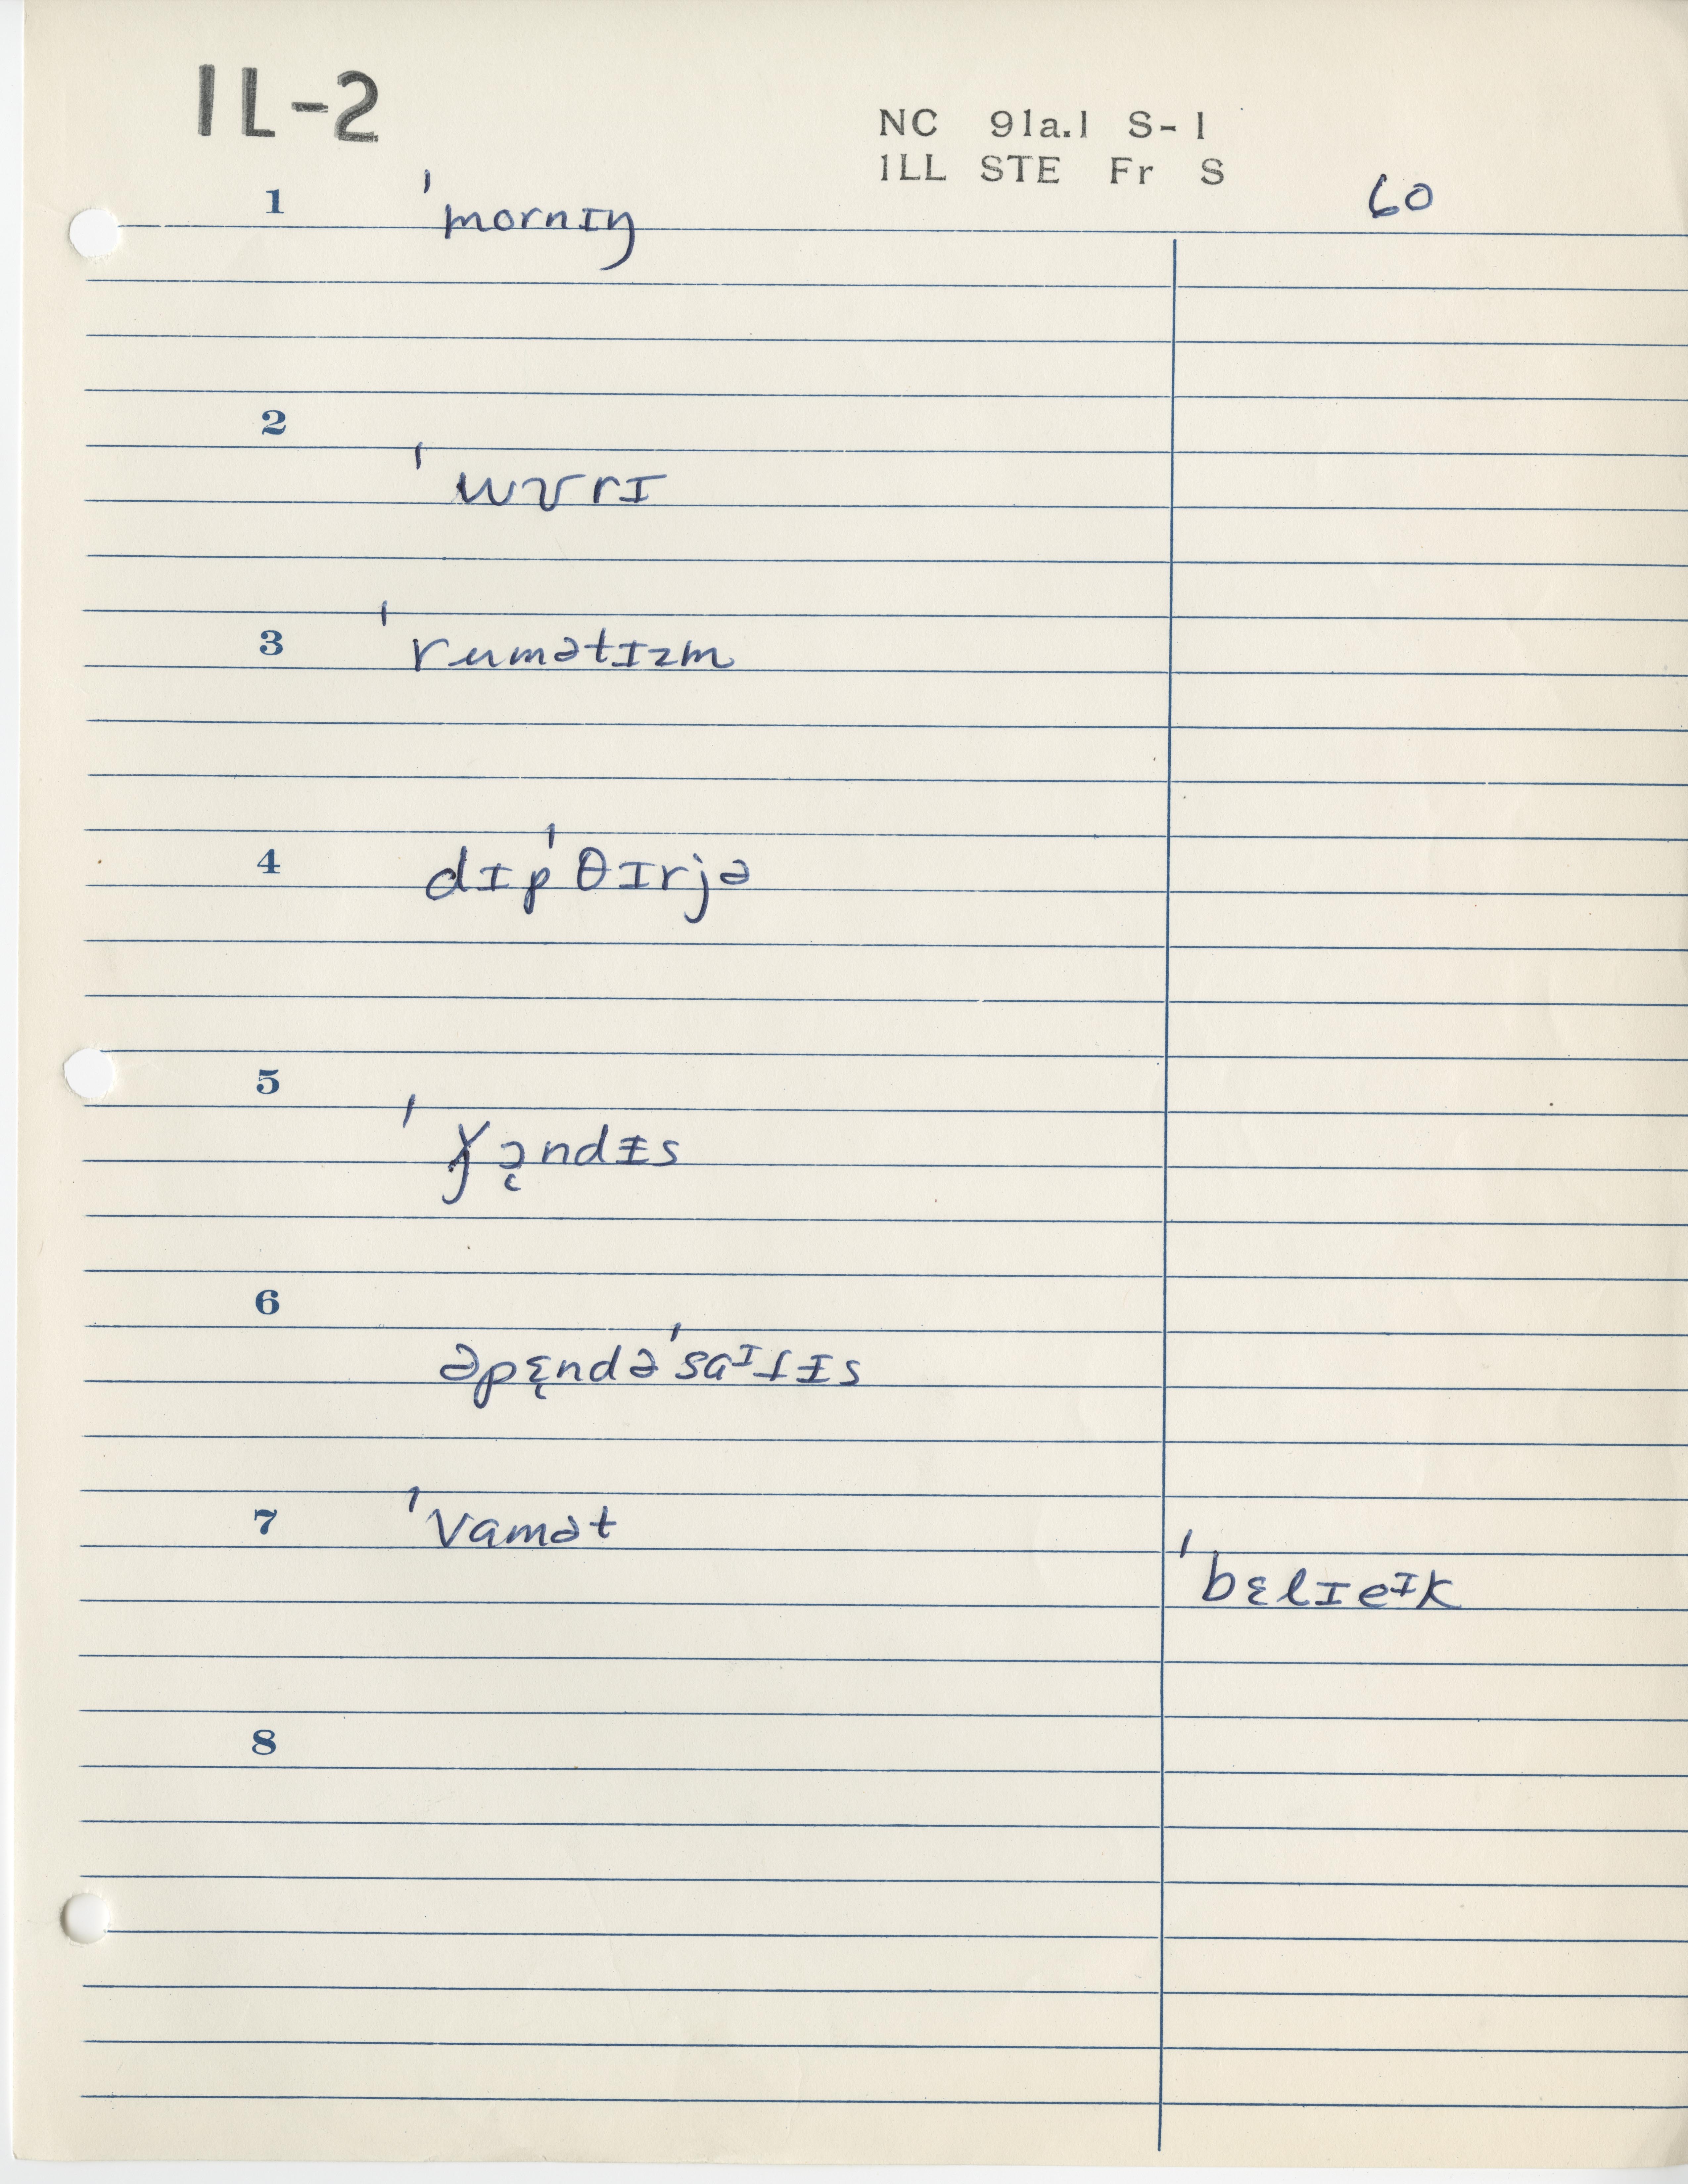 IL-2
NC 91a.1 S-1
ILL STE Fr S
60
1 ˈmornɪŋ
2 ˈwʊrɪ
3 ˈrumətɪzm
4 dɪpˈθɪrjə
5 ǰə̨ndɨs
6 əpɛ̨ndəˈsaᶦtɨs
7 ˈvamət
ˈbɛlɪeᶦk
8